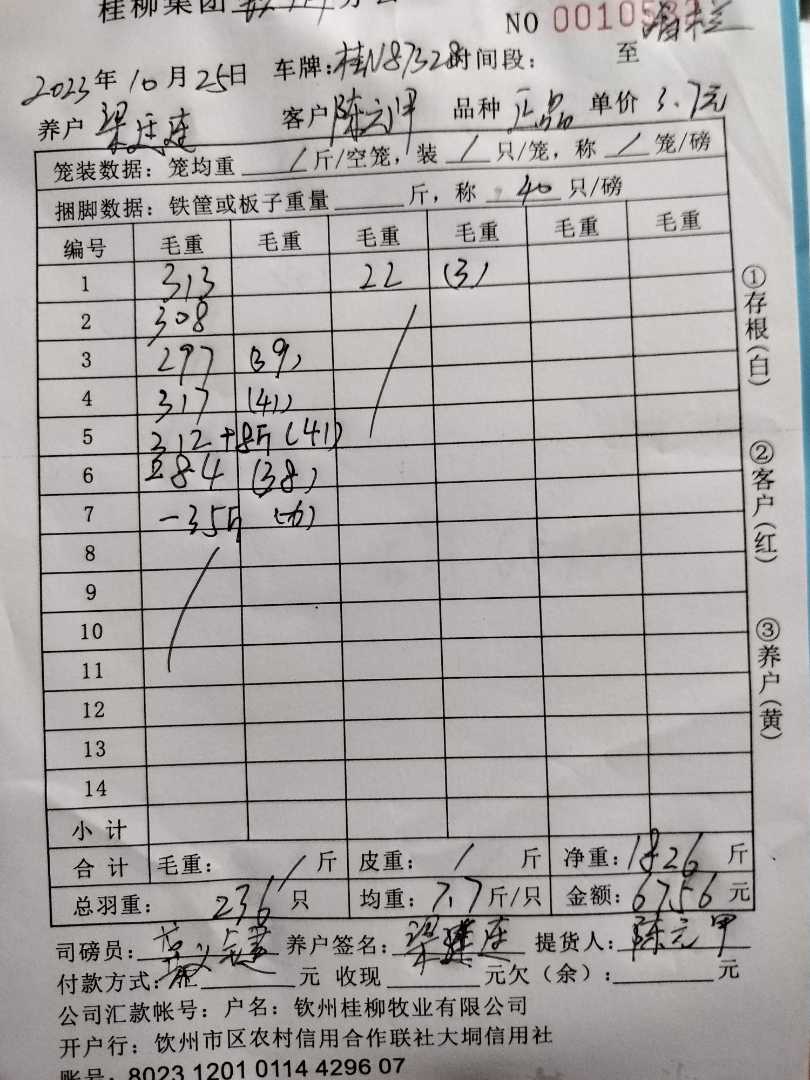 桂柳集团
NO 0010582
2023年10月25日 车牌:桂N87328 时间段: 至
养户 梁廷连 客户 陈元甲 品种 正品 单价 3.7元
笼装数据:笼均重 / 斤/空笼,装 / 只/笼,称 / 笼/磅
捆脚数据:铁筐或板子重量 斤,称 40 只/磅
编号 毛重 毛重 毛重 毛重 毛重 毛重
1 313 22 (3)
2 308
3 297 (39)
4 317 (41)
5 312+8斤 (41)
6 284 (38)
7 -35斤
8
9
10
11
12
13
14
小计
合计 毛重: / 斤 皮重: / 斤 净重: 1826 斤
总羽重: 236 只 均重: 7.7 斤/只 金额: 6756 元
司磅员: 养户签名: 梁廷连 提货人: 陈元甲
付款方式: 元 收现 元欠(余): 元
公司汇款帐号:户名:钦州桂柳牧业有限公司
开户行:钦州市区农村信用合作联社大垌信用社
账号:8023 1201 0114 4296 07
①存根(白)
②客户(红)
③养户(黄)